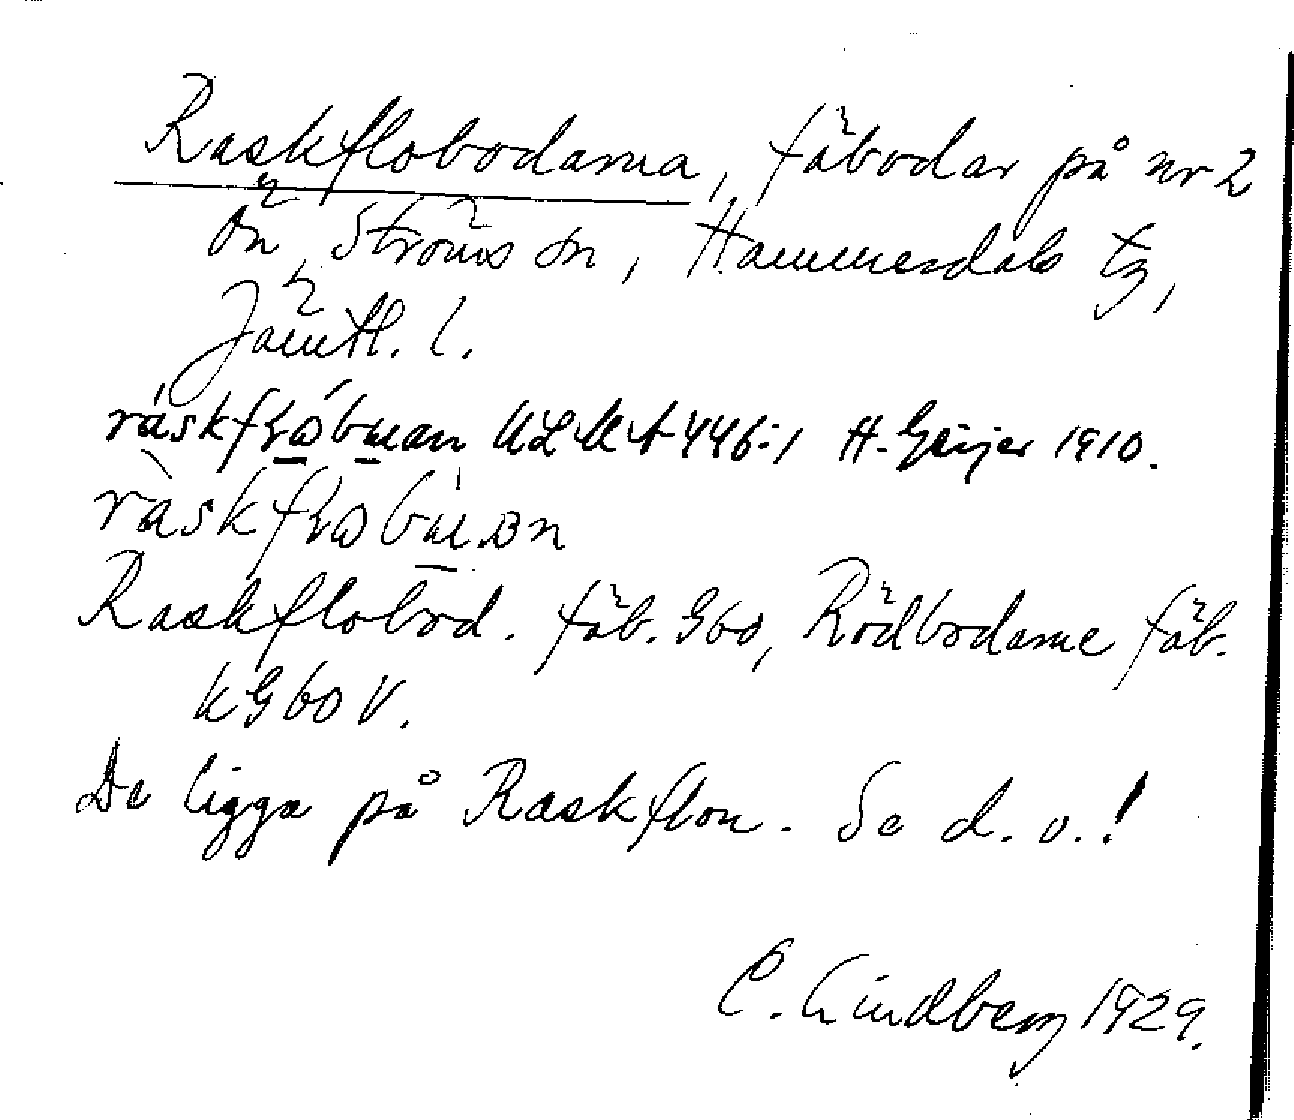 Raskflobodarna, fäbodar på nr 2
Ön, Ströms sn, Hammerdals tg,
Jämtl. l.
ULMA 446:1 H. Geijer 1910.
Raskflobod. fäb. G60, Rödbodarne fäb.
kG60V.
De ligga på Raskflon. Se d. o.!
C. Lindberg 1929.